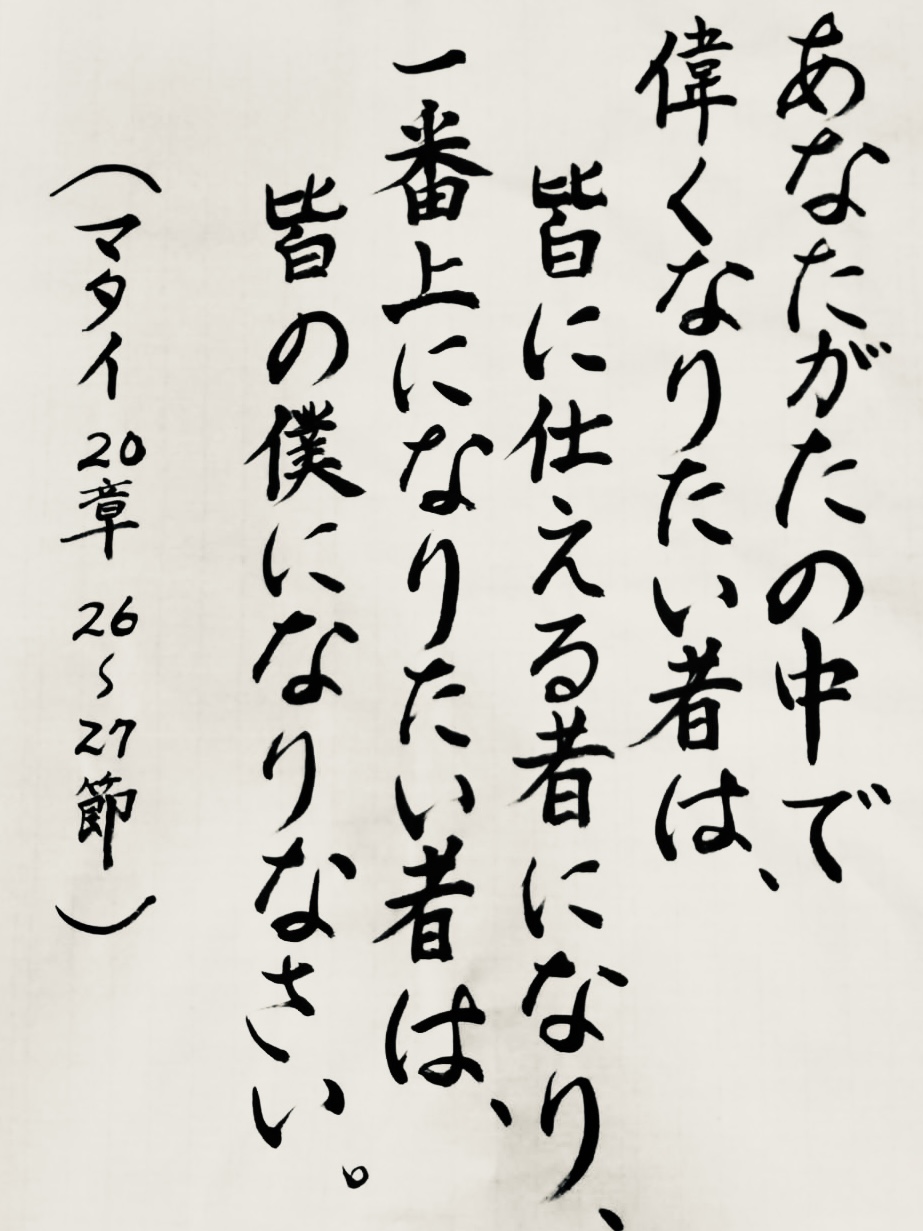 あなたがたの中で
偉くなりたい者は、
皆に仕える者になり、
一番上になりたい者は、
皆の僕になりなさい。
(マタイ 20章 26〜27節)